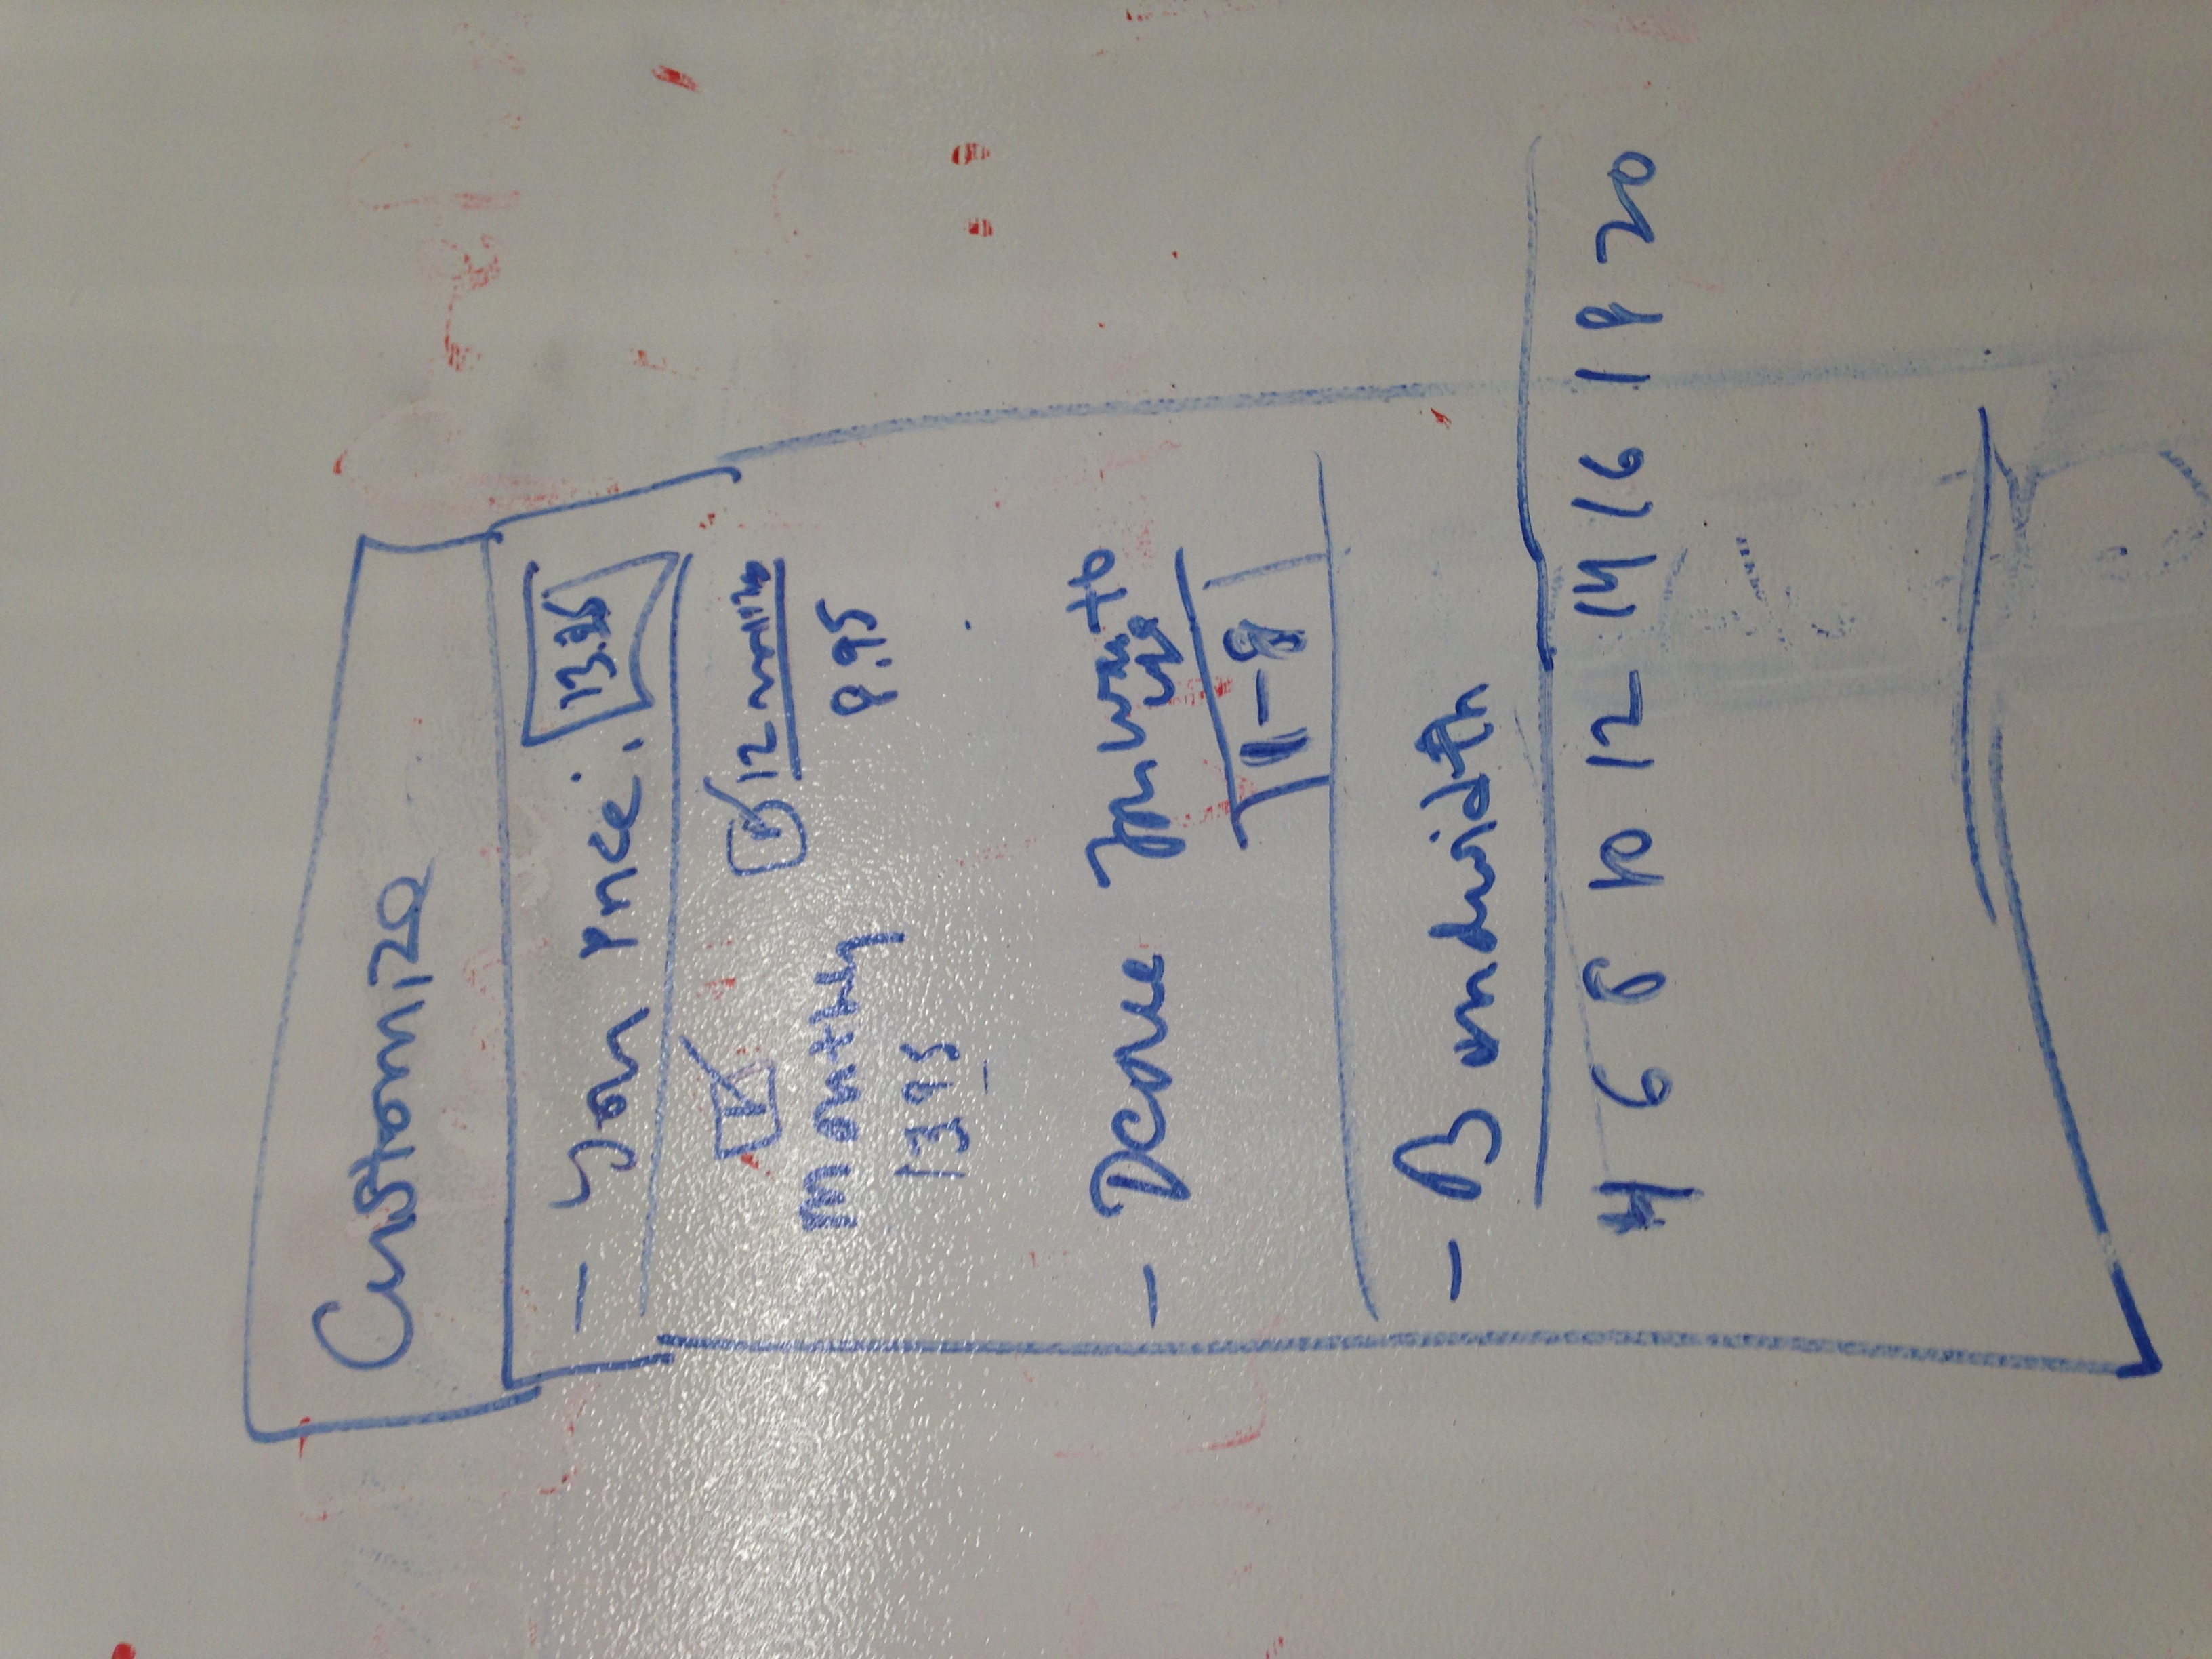 Customize
- Your Price: 13.95
12 months
Monthly
8.95
13.95
- Device you want to
use
1-8
- Bandwidth
4 6 8 10 12 14 16 18 20